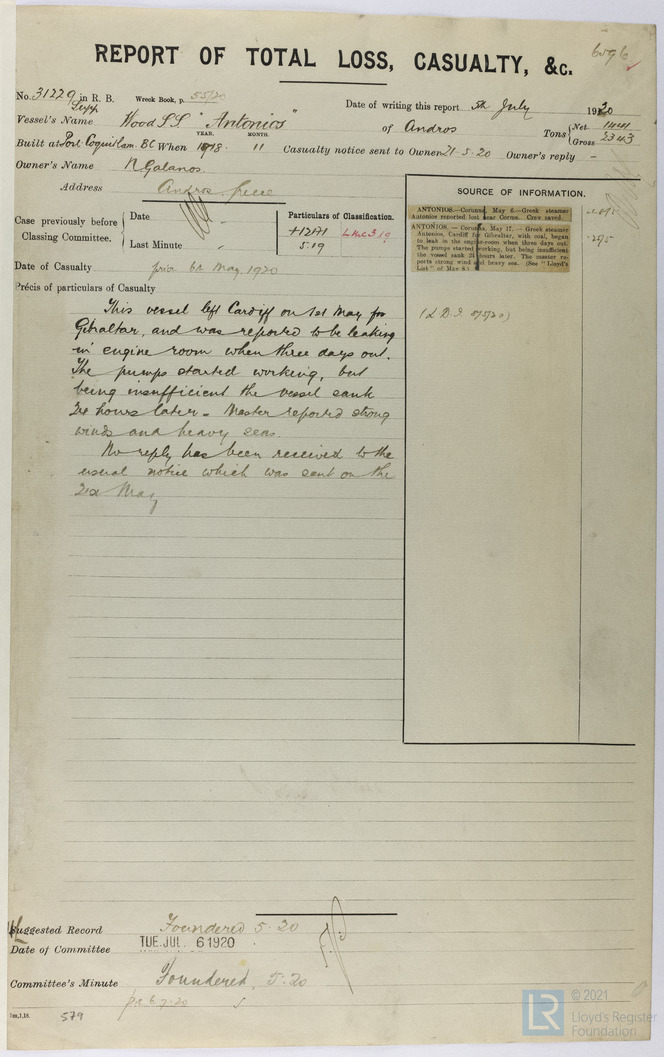 6596
REPORT OF TOTAL LOSS, CASUALTY, &c.
No. 31229 in R. B. Wreck Book, p. 55/20
Supp.
Date of writing this report 5th July 1920
Vessel's Name Wood S.S. "Antonios" of Andros
Tons { Net 1441
Gross 2343
YEAR. MONTH.
Built at Port Coquitlam. BC When 1918. 11 Casualty notice sent to Owner 21-5-20 Owner's reply -
Owner's Name N Galanos.
Address Andros Greece
Case previously before Classing Committee.
Date -
Last Minute
Particulars of Classification.
+12A1 LMC 3.19
5.19
Date of Casualty prior 6th May 1920
Précis of particulars of Casualty
This vessel left Cardiff on 1st May for
Gibraltar, and was reported to be leaking
in engine room when three days out.
The pumps started working, but
being insufficient the vessel sank
24 hours later. Master reported strong
winds and heavy seas.
No reply has been received to the
usual notice which was sent on the
21st May
SOURCE OF INFORMATION.
ANTONIOS.—Corunna, May 6.—Greek steamer
Antonios reported lost near Corune. Crew saved.
ANTONIOS.—Corunna, May 17.—Greek steamer
Antonios, Cardiff for Gibraltar, with coal, began
to leak in the engine-room when three days out.
The pumps started working, but being insufficient
the vessel sank 24 hours later. The master re-
ports strong wind and heavy sea. (See "Lloyd's
List" of May 8.)
Suggested Record Foundered 5.20
Date of Committee TUE. JUL 6 1920
Committee's Minute Foundered, 5.20
6.7.20
1m,1,18.
579
LR
© 2021
Lloyd's Register
Foundation